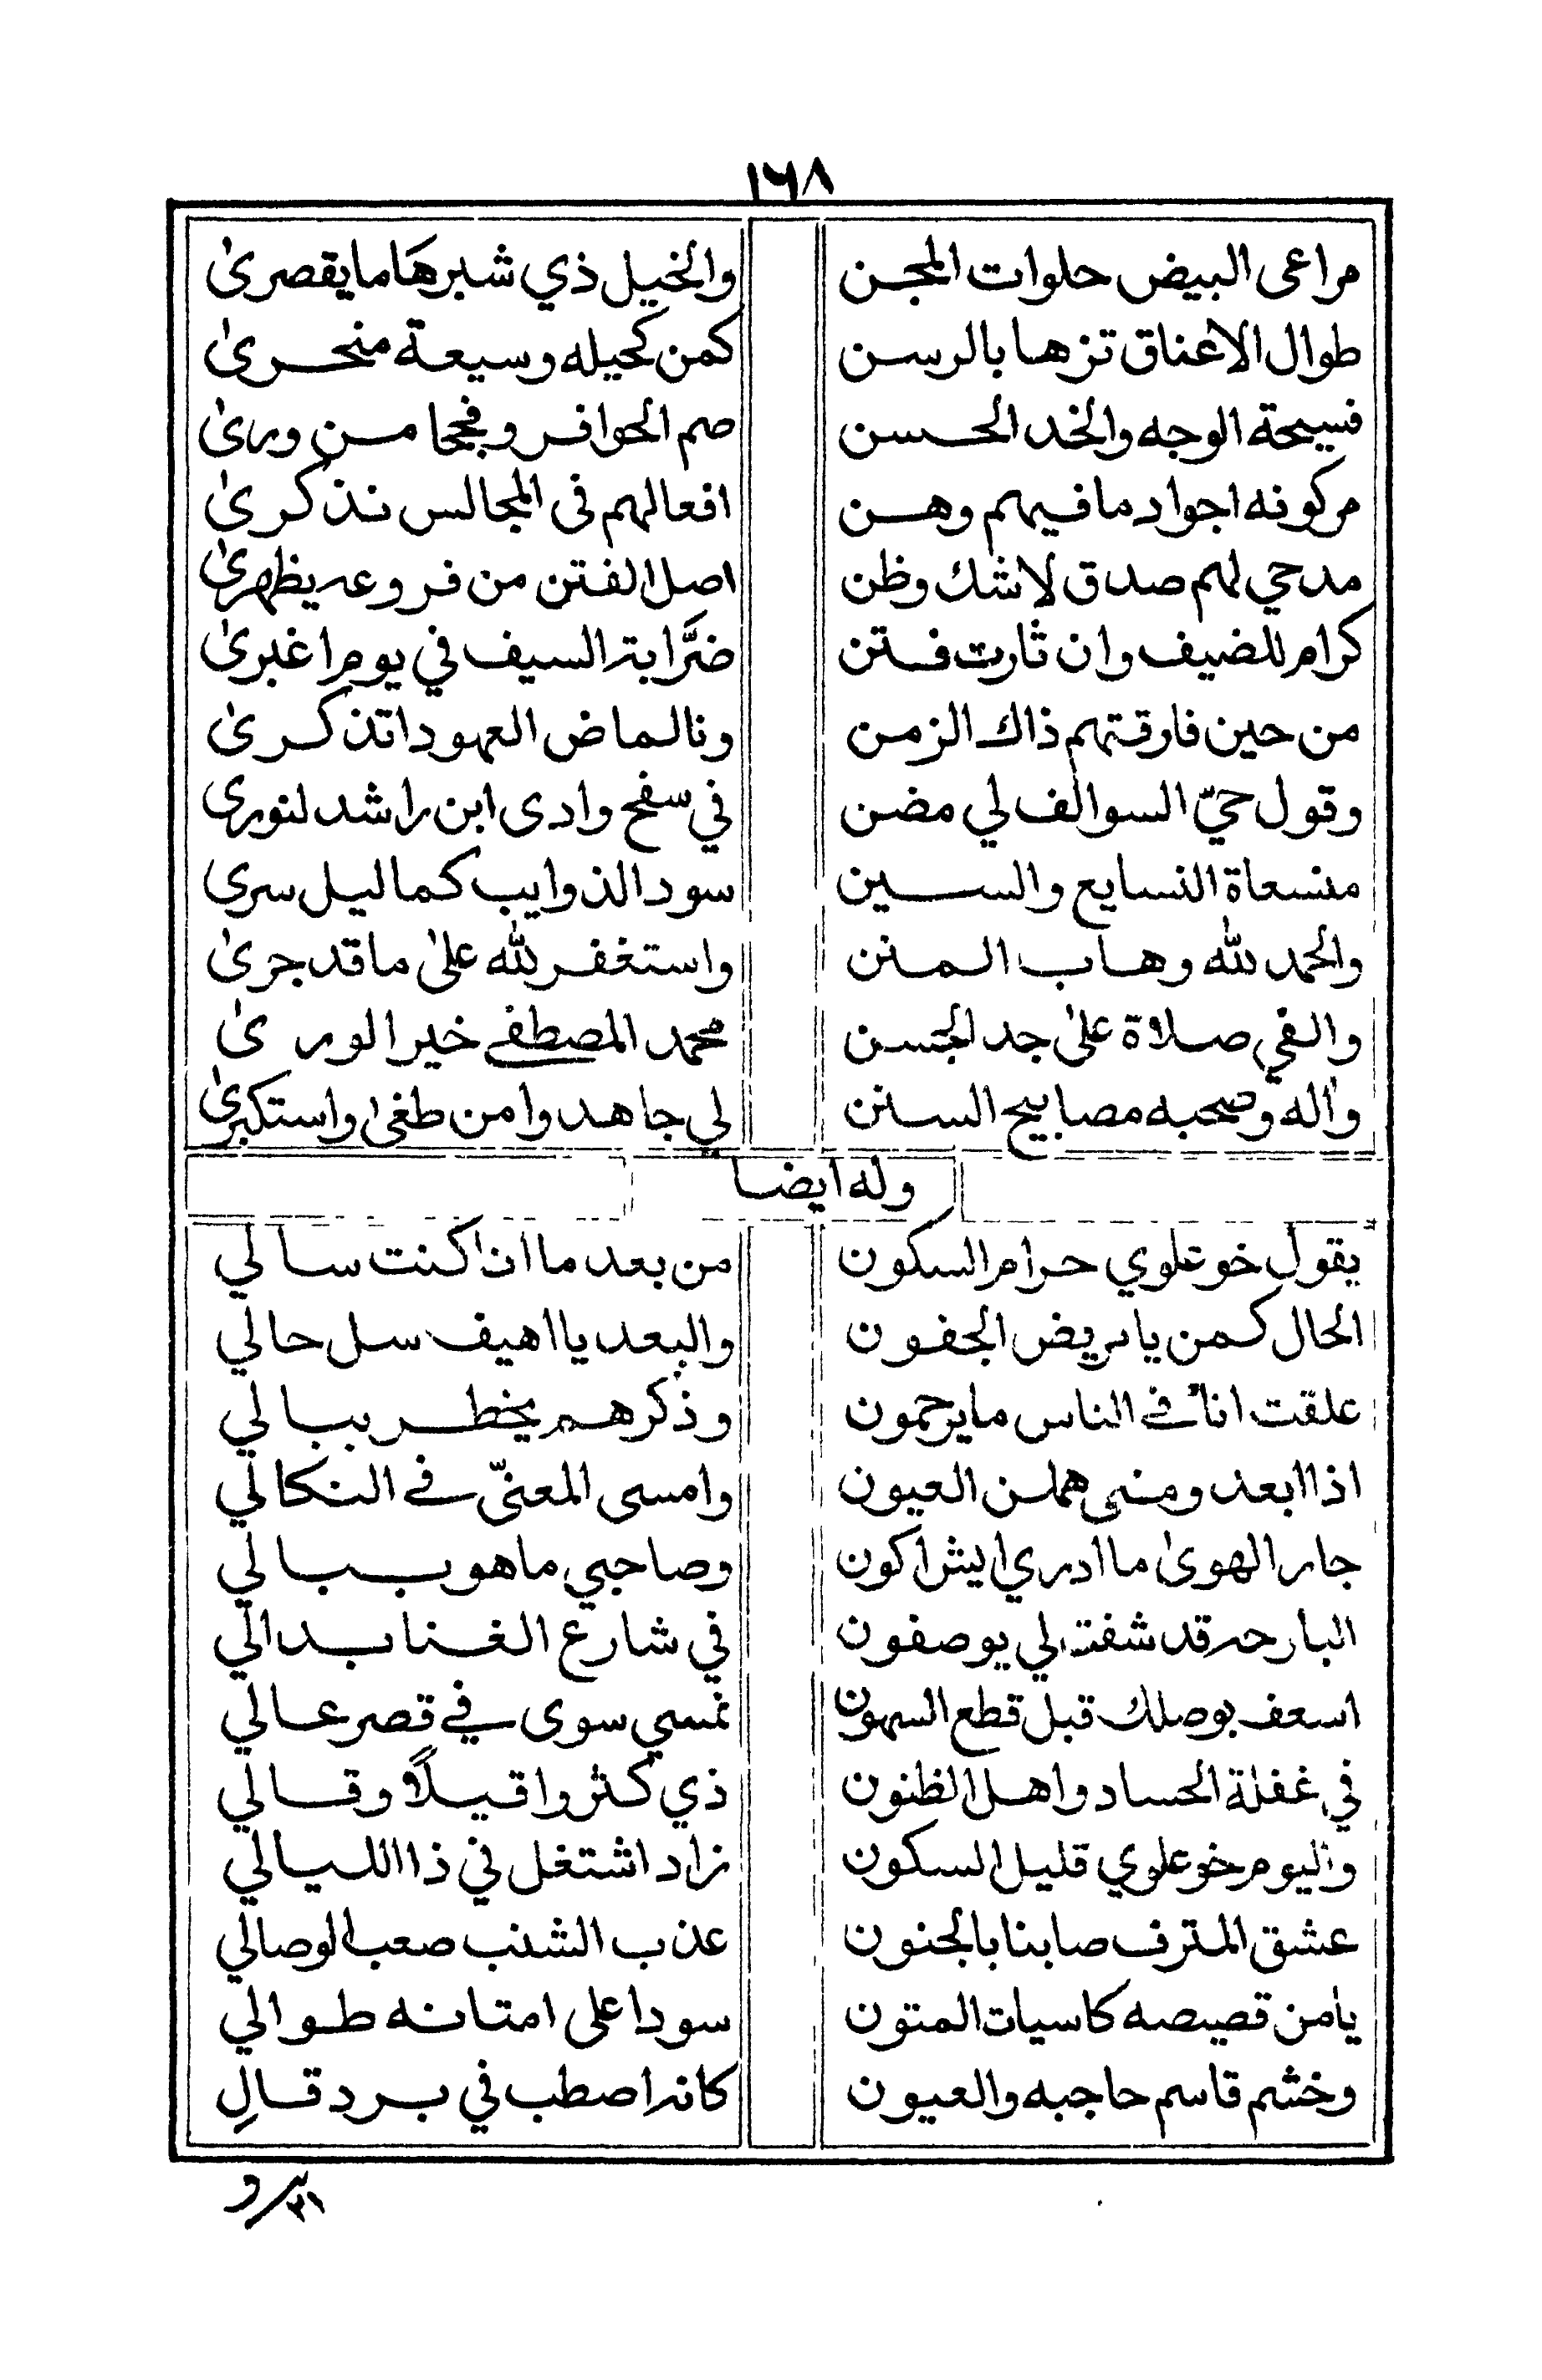 ١٦٨
مراعى البيض حلوات المجن والخيل ذي شبرها ما يقصرى
طوال الاعناق تزها بالرسن كمن كحيله وسيعة منحرى
فسيحة الوجه والخد الحسن صم الحوافر وفجحا من ورى
مركونه اجواد ما فيهم وهن افعالهم فى المجالس نذكرى
مدحي لهم صدق لا شك وظن اصل الفتن من فروعه يظهرى
كرام للضيف وان ثارت فتن ضرَّابة السيف في يوم اغبرى
من حين فارقتهم ذاك الزمن ونا لماض العهود اتذكرى
وقول حيّ السوالف لي مضن في سفح وادى ابن راشد لنورى
منسعاة النسايع والسين سود الذوايب كما ليل سرى
والحمد لله وهاب المنن واستغفر لله على ما قد جرى
والفي صلاة على جد الحسن محمد المصطفى خير الورى
واله وصحبه مصابيح السنن لي جاهدوا من طغى واستكبرى
وله ايضا
يقول خو علوي حرام السكون من بعد ما انا كنت سالي
الحال كمن يا مريض الجفون والبعد يا اهيف سل حالي
علقت انا في الناس ما يرحمون وذكرهم يخطر ببالي
اذا ابعد ومنى هملن العيون وامسى المعنّى في النكالي
جار الهوى ما ادري ايش اكون وصاحبي ما هو ببالي
البارحه قد شفته لي يوصفون في شارع الغنا بدالي
اسعف بوصلك قبل قطع السهون نمسي سوى في قصر عالي
في غفلة الحساد واهل الظنون ذي كثروا قيلاً وقالي
واليوم خو علوي قليل السكون زاد اشتغل في ذا الليالي
عشق المترف صابنا بالجنون عذب الشنب صعب الوصالي
يا من قصيصه كاسيات المتون سودا على امتانه طوالي
وخشم قاسم حاجبه والعيون كانه اصطب في برد قالِ